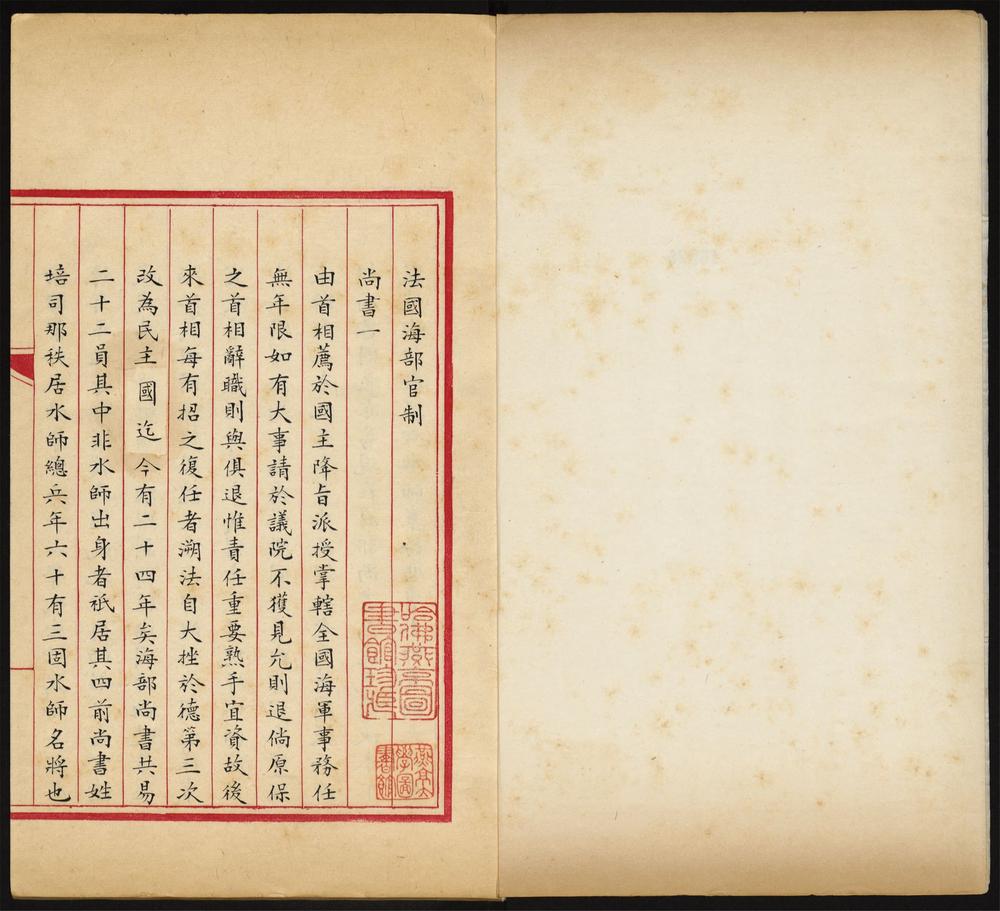 法國海部官制
尚書一
由首相薦於國主降旨派授掌轄全國海軍事務任
無年限如有大事請於議院不獲見允則退倘原保
之首相辭職則與俱退惟責任重要熟手宜資故後
來首相每有招之復任者溯法自大挫於德第三次
改為民主國迄今有二十四年矣海部尚書共易
二十二員其中非水師出身者祇居其四前尚書姓
培司那秩居水師總兵年六十有三固水師名將也
哈佛燕京圖
書館珍藏
燕京大
學圖
書館